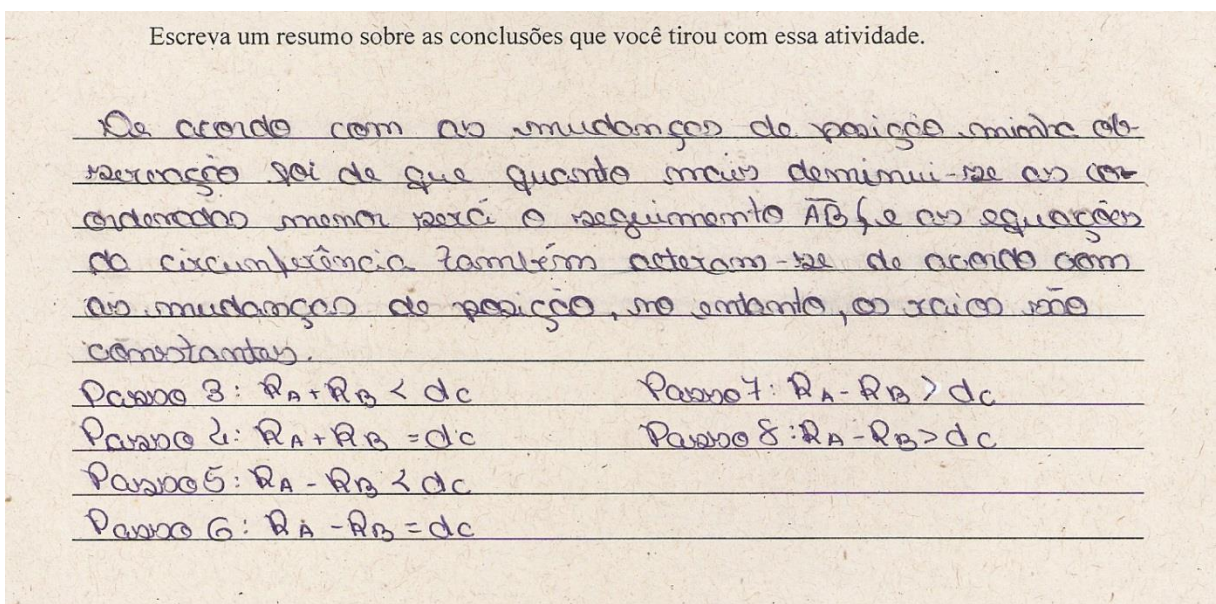 Escreva um resumo sobre as conclusões que você tirou com essa atividade.
De acordo com as mudanças de posição minha ob-
servação foi de que quanto mais deminui-se as co-
ordenadas menor será o seguimento AB, e as equações
da circunferência também acteram-se de acordo com
as mudanças de posição, no entanto, os raios são
constantes.
Passo 3: RA + RB < dc
Passo 4: RA + RB = dc
Passo 5: RA - RB < dc
Passo 6: RA - RB = dc
Passo 7: RA - RB > dc
Passo 8: RA - RB > dc